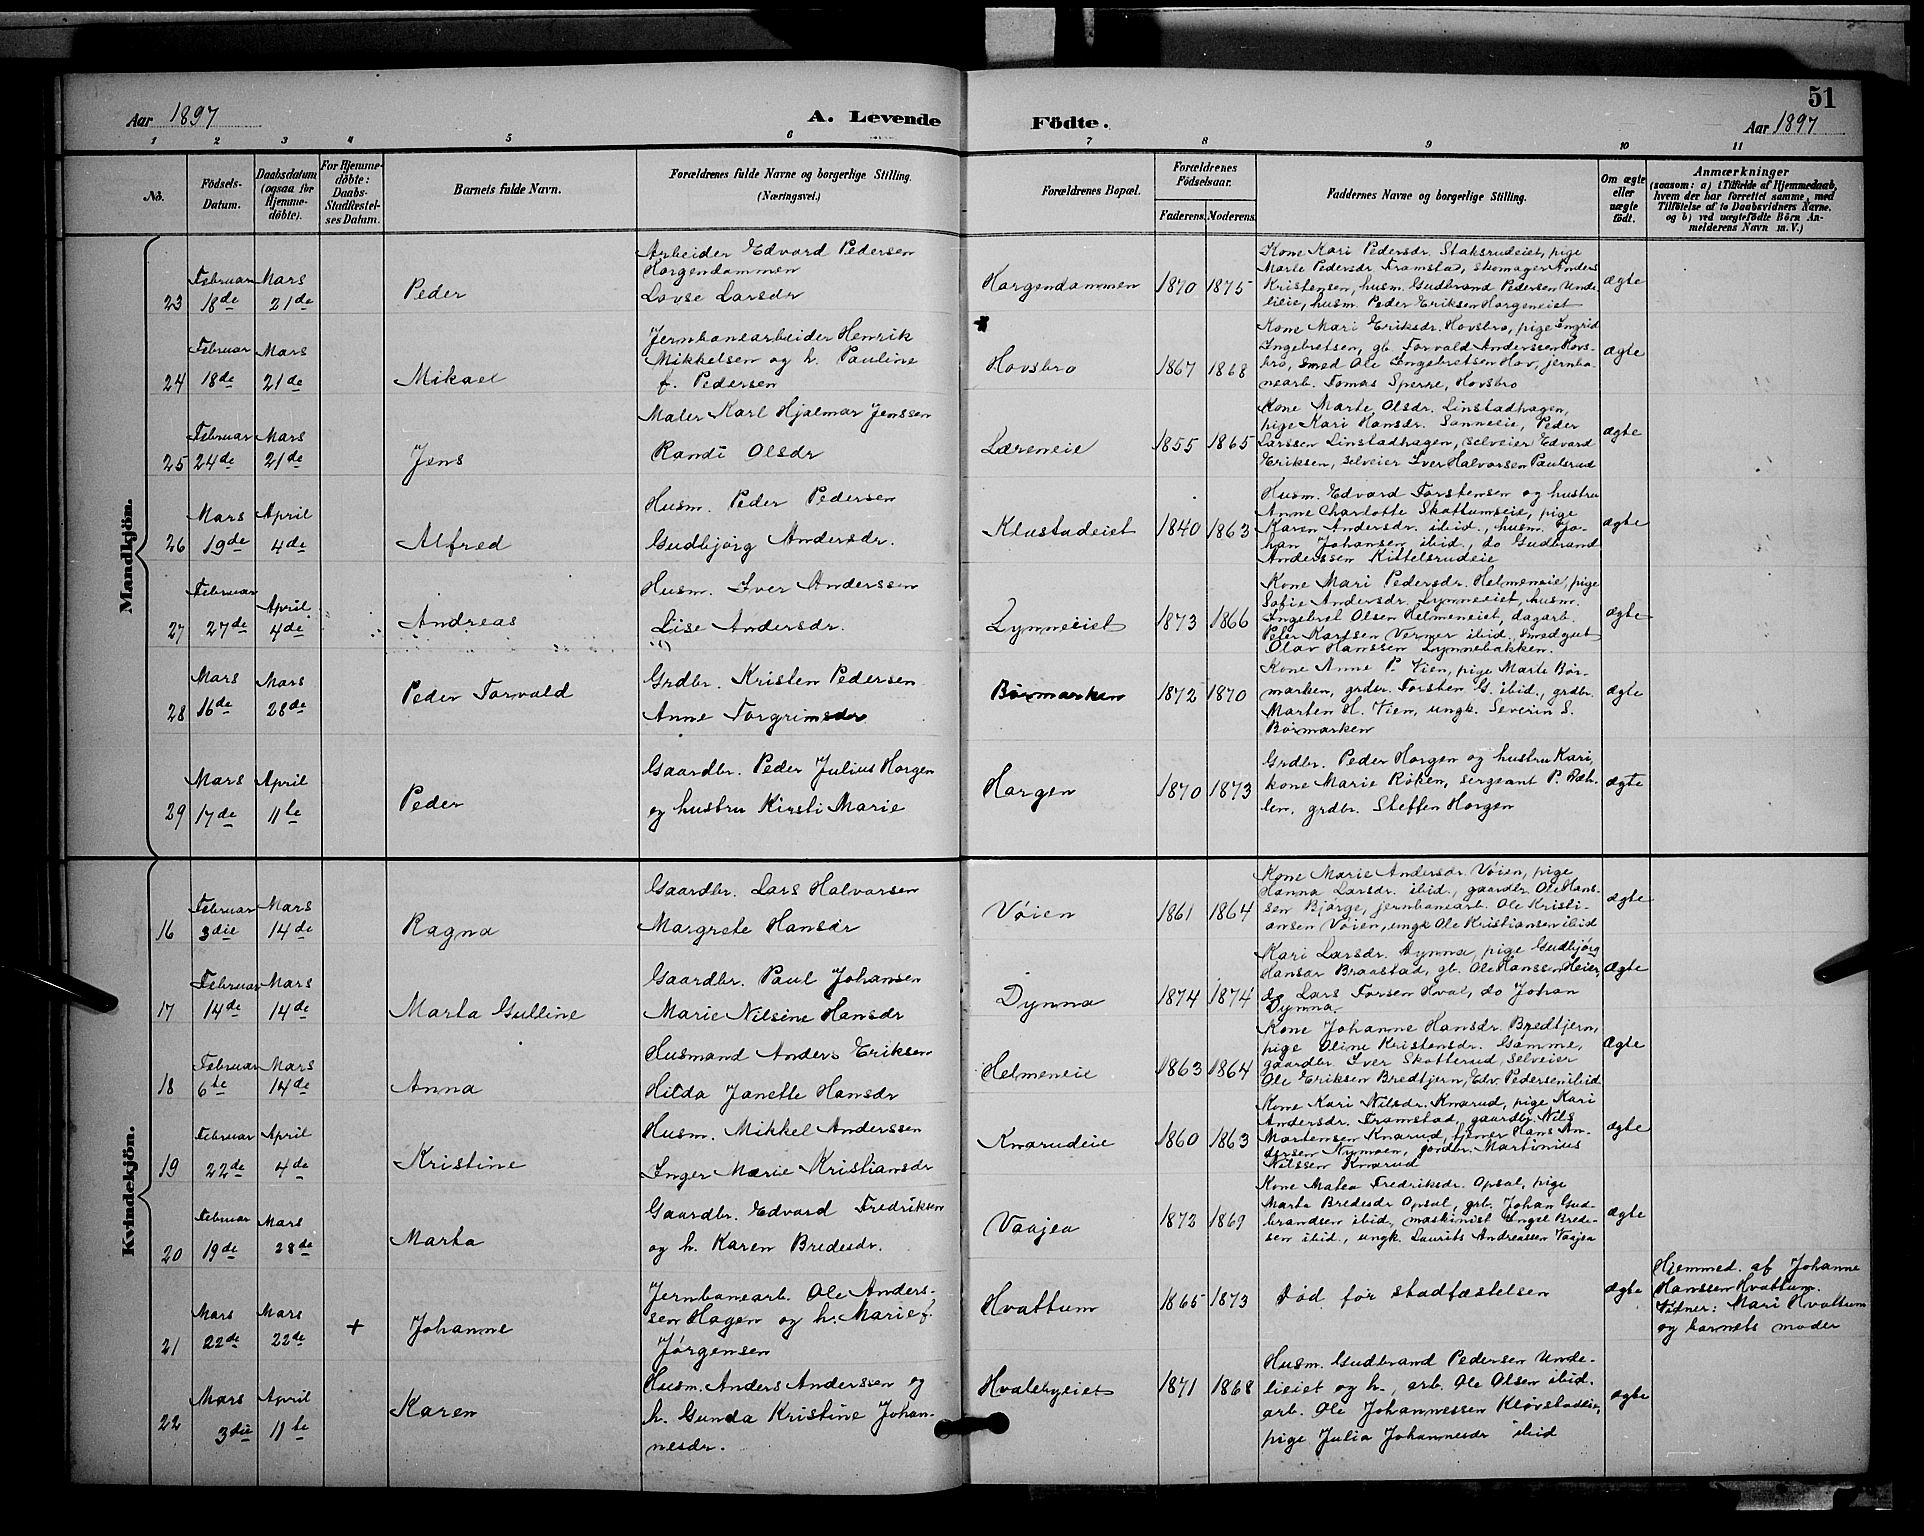 Aar 1897
A. Levende Födte.
51
Aar 1897
1 2 3 4 5 6 7 8 9 10 11
No.
Födsels-Datum.
Daabsdatum (ogsaa for Hjemme-döbte).
For Hjemme-döbte: Daabs-Stadfæstel-ses Datum.
Barnets fulde Navn.
Forældrenes fulde Navne og borgerlige Stilling. (Næringsvei.)
Forældrenes Bopæl.
Forældrenes Födselsaar.
Faderens. Moderens.
Faddernes Navne og borgerlige Stilling.
Om ægte eller uægte födt.
Anmærkninger
(saasom: a) i Tilfælde af Hjemmedaab, hvem der har forrettet samme, med Tilföielse af to Daabsvidners Navne, og b) ved uægtefödte Börn Anmelderens Navn m. V.)
Mandkjön.
23 Februar 18de Mars 21de Peder
Arbeider Edvard Pedersen
Horgendammen
Lovse Larsdr
Horgendammen 1870 1875
Kone Kari Pedersdr. Staksrudeiet, pige
Marte Pedersdr Framstad, skomager Anders
Kristensen, husm. Gudbrand Pedersen Unde-
lieie, husm. Peder Eriksen Horgeneiet
ægte
24 Februar 18de Mars 21de Mikael
Jernbanearbeider Henrik
Mikkelsen og h. Pauline
f. Pedersen
Hovsbro 1867 1868
Kone Mari Eriksdr. Hovsbro, pige Ingrid
Ingebretsen, gb. Torvald Anderssen Hovs-
bro, Smed Ole Ingebretsen Hov, jernba-
nearb. Tomas Sperre, Hovsbro
ægte
25 Februar 24de Mars 21de Jens
Maler Karl Hjalmar Jenssen
Randi Olsdr
Læreneie 1855 1865
Kone Marte Olsdr. Linstadhagen,
pige Kari Hansdr. Sanneeie, Peder
Larssen Linstadhagen, selveier Edvard
Eriksen, selveier Iver Halvorsen Paulsrud
ægte
26 Mars 19de April 4de Alfred
Husm. Peder Pedersen
Gudbjørg Andersdr.
Klustadeiet 1840 1863
Husm. Edvard Torstensen og hustru
Anne Charlotte Skattumseie, pige
Karen Andersdr. ibid., husm. Jo-
han Johansen ibid., do Gudbrand
Anderssen Kittelsrudeie
ægte
27 Februar 27de April 4de Andreas
Husm. Iver Anderssen
Lise Andersdr.
Lynneeiet 1873 1866
Kone Mari Pedersdr. Helmeneie, pige
Sofie Andersdr. Lynneeiet, husm.
Ingebret Olsen Helmeneiet, dagarb.
Peter Karlsen Verner ibid, smedgut
Olav Hanssen Lynnebakken.
ægte
28 Mars 16de Mars 28de Peder Torvald
Grdbr. Kristen Pedersen
Anne Torgrimsdr
Børmarken 1872 1870
Kone Anne P. Vien, pige Marte Bør-
marken, grdbr. Torsten G. ibid., grdbr.
Marten H. Vien, ungk. Severin S.
Børmarken
ægte
29 Mars 17de April 11te Peder
Gaardbr. Peder Julius Horgen
og hustru Kirsti Marie
Horgen 1870 1873
Grdbr. Peder Horgen og hustru Kari,
kone Marie Røken, sergeant P. Bæh-
len, grdbr. Steffen Horgen
ægte
Kvindekjön.
16 Februar 3die Mars 14de Ragna
Gaardbr. Lars Halvorsen
Margrete Hansdr
Vøien 1861 1864
Kone Marie Andersdr. Vøien, pige
Hanna Larsdr. ibid., gaardbr. Ole Hans-
sen Bjørge, jernbanearb. Ole Kristi-
ansen Vøien, ungk Ole Kristiansen ibid
ægte
17 Februar 14de Mars 14de Marta Gulline
Gaardbr. Paul Johansen
Marie Nilsine Hansdr
Dynna 1874 1874
Kari Larsdr. Dynna, pige Gudbjørg
Hansdr Braastad, gb. Ole Hanssen Heier,
do Lars Torsen Hval, do Johan
Dynna.
ægte
18 Februar 6te Mars 14de Anna
Husmand Anders Eriksen
Hilda Janette Hansdr
Helmeneie 1863 1864
Kone Johanne Hansdr. Bredtjern,
pige Oline Kristensdr. Gamme,
gaardbr. Iver Skatterud, selveier
Ole Eriksen Bredtjern, Edv. Pedersen ibid
ægte
19 Februar 22de April 4de Kristine
Husm. Mikkel Anderssen
Inger Marie Kristiansdr
Knarudeie 1860 1863
Kone Kari Nilsdr. Knarud, pige Kari
Andersdr. Framstad, gaardbr. Nils
Martensen Knarud, tjener Hans An-
dersen Nymoen, gardbr. Martinius
Nilssen Knarud
ægte
20 Februar 19de Mars 28de Marta
Gaardbr. Edvard Fredriksen
og h. Karen Bredesdr.
Vaajea 1873 1869
Kone Matea Fredriksdr. Opsal, pige
Marta Bredesdr Opsal, grb. Johan Gud-
brandsen ibid, maskinist Engel Brede-
sen ibid, ungk. Laurits Andreassen Vaajea
ægte
21 Mars 22de Mars 22de + Johanne
Jernbanearb. Ole Anders-
sen Hagen og h. Marie f.
Jørgensen
Hvattum 1865 1873
Død før stadfæstelsen
ægte
Hjemmed. af Johanne
Hanssen Hvattum.
Vidner: Mari Hvattum
og barnets moder
22 Mars 3die April 11te Karen
Husm. Anders Anderssen og
h. Gunda Kristine Johan-
nesdr.
Hvalebyeiet 1871 1868
Husm. Gudbrand Pedersen Unde-
lieiet og h., arb. Ole Olsen ibid.
arb. Ole Johannessen Kløvstadeie,
pige Julia Johannesdr ibid
ægte